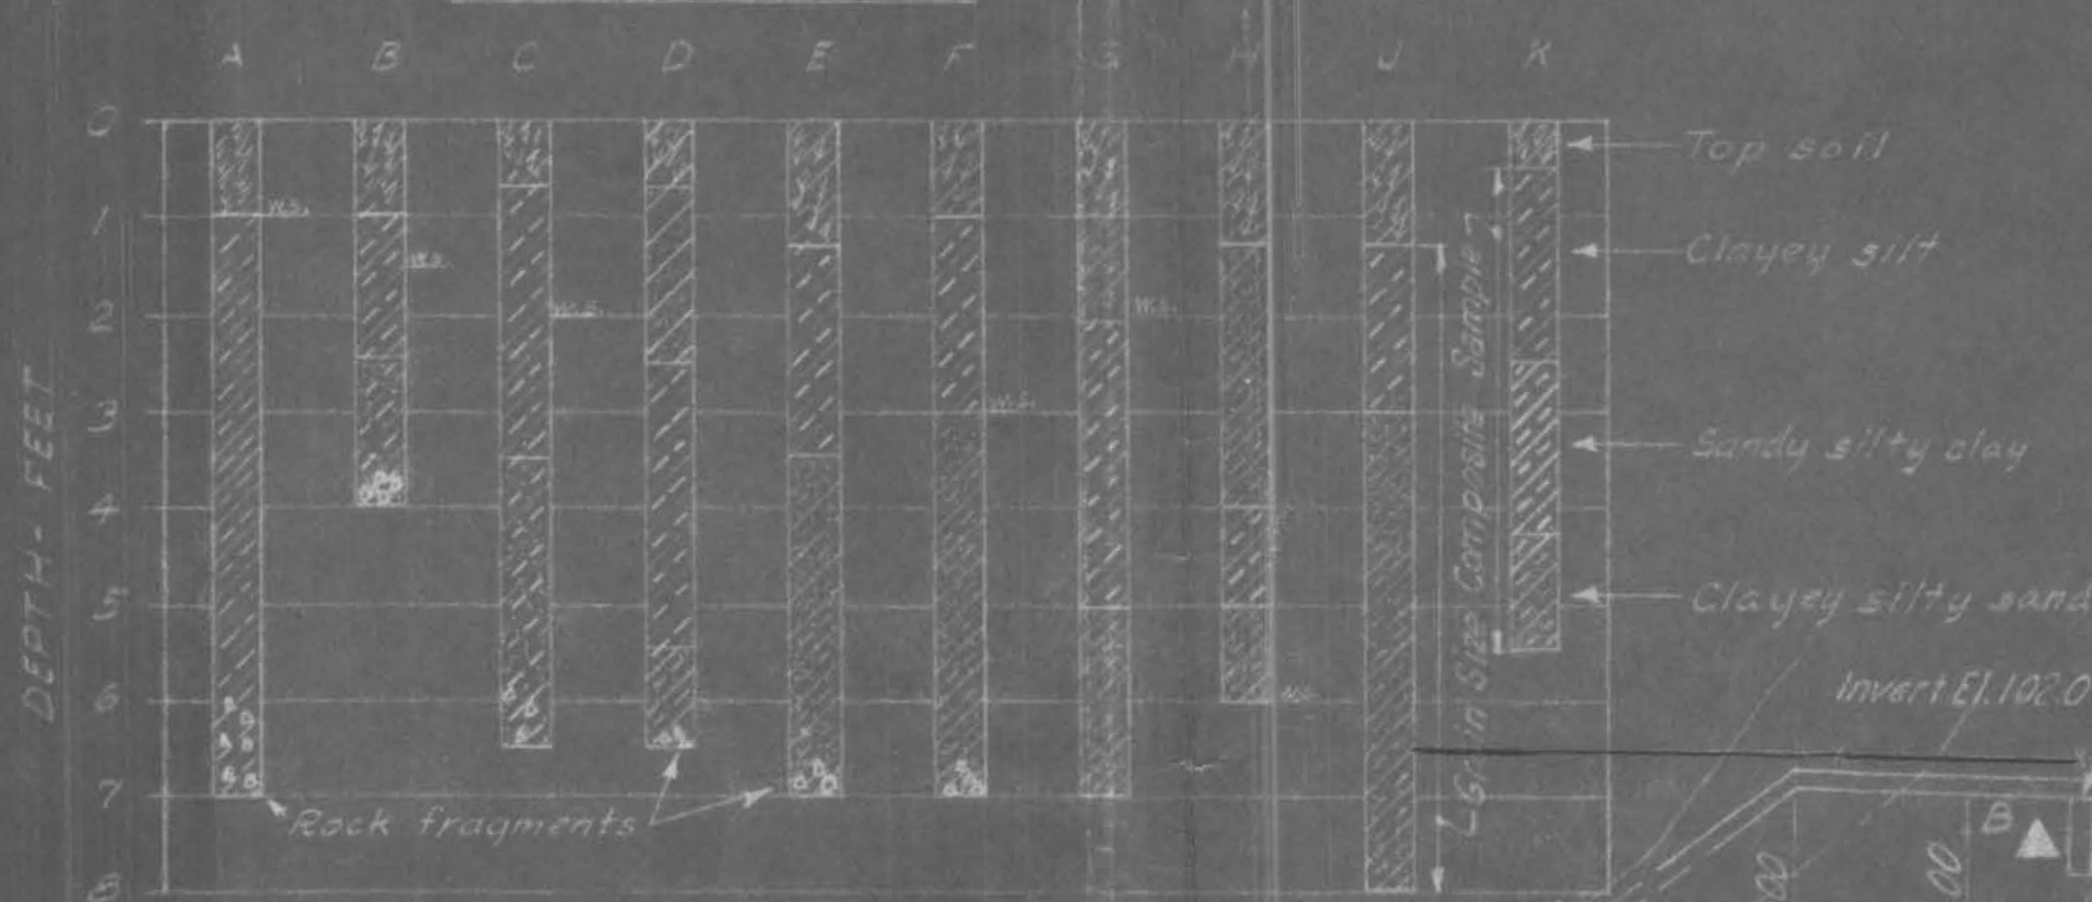 A B C D E F G H J K
0
1
2
3
4
5
6
7
8
DEPTH - FEET
W.S.
W.S.
W.S.
W.S.
W.S.
W.S.
Top soil
Clayey silt
Sandy silty clay
Clayey silty sand
Grain Size Composite Sample
Rock fragments
Invert El. 102.0
B
00
00